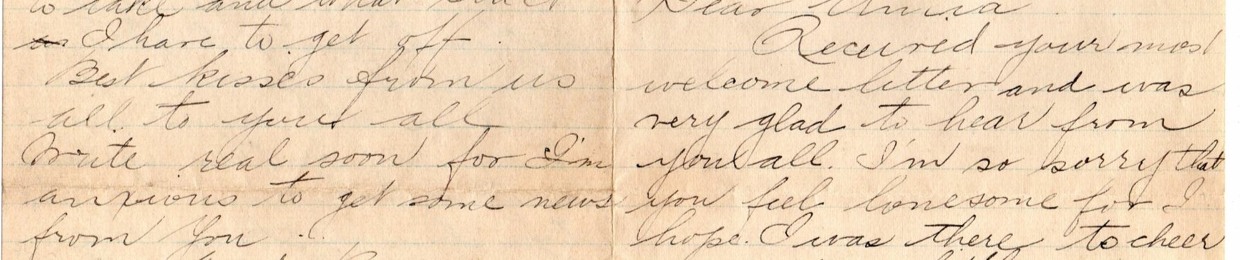 to take and what
I have to get off.
Best kisses from us
all. to your all
Write real soon for I'm
anxious to get some news
from You ..
Dear
Received your most
welcome letter and was
very glad to hear from
you all. I'm so sorry that
you feel lonesome for I
hope. I was there to cheer